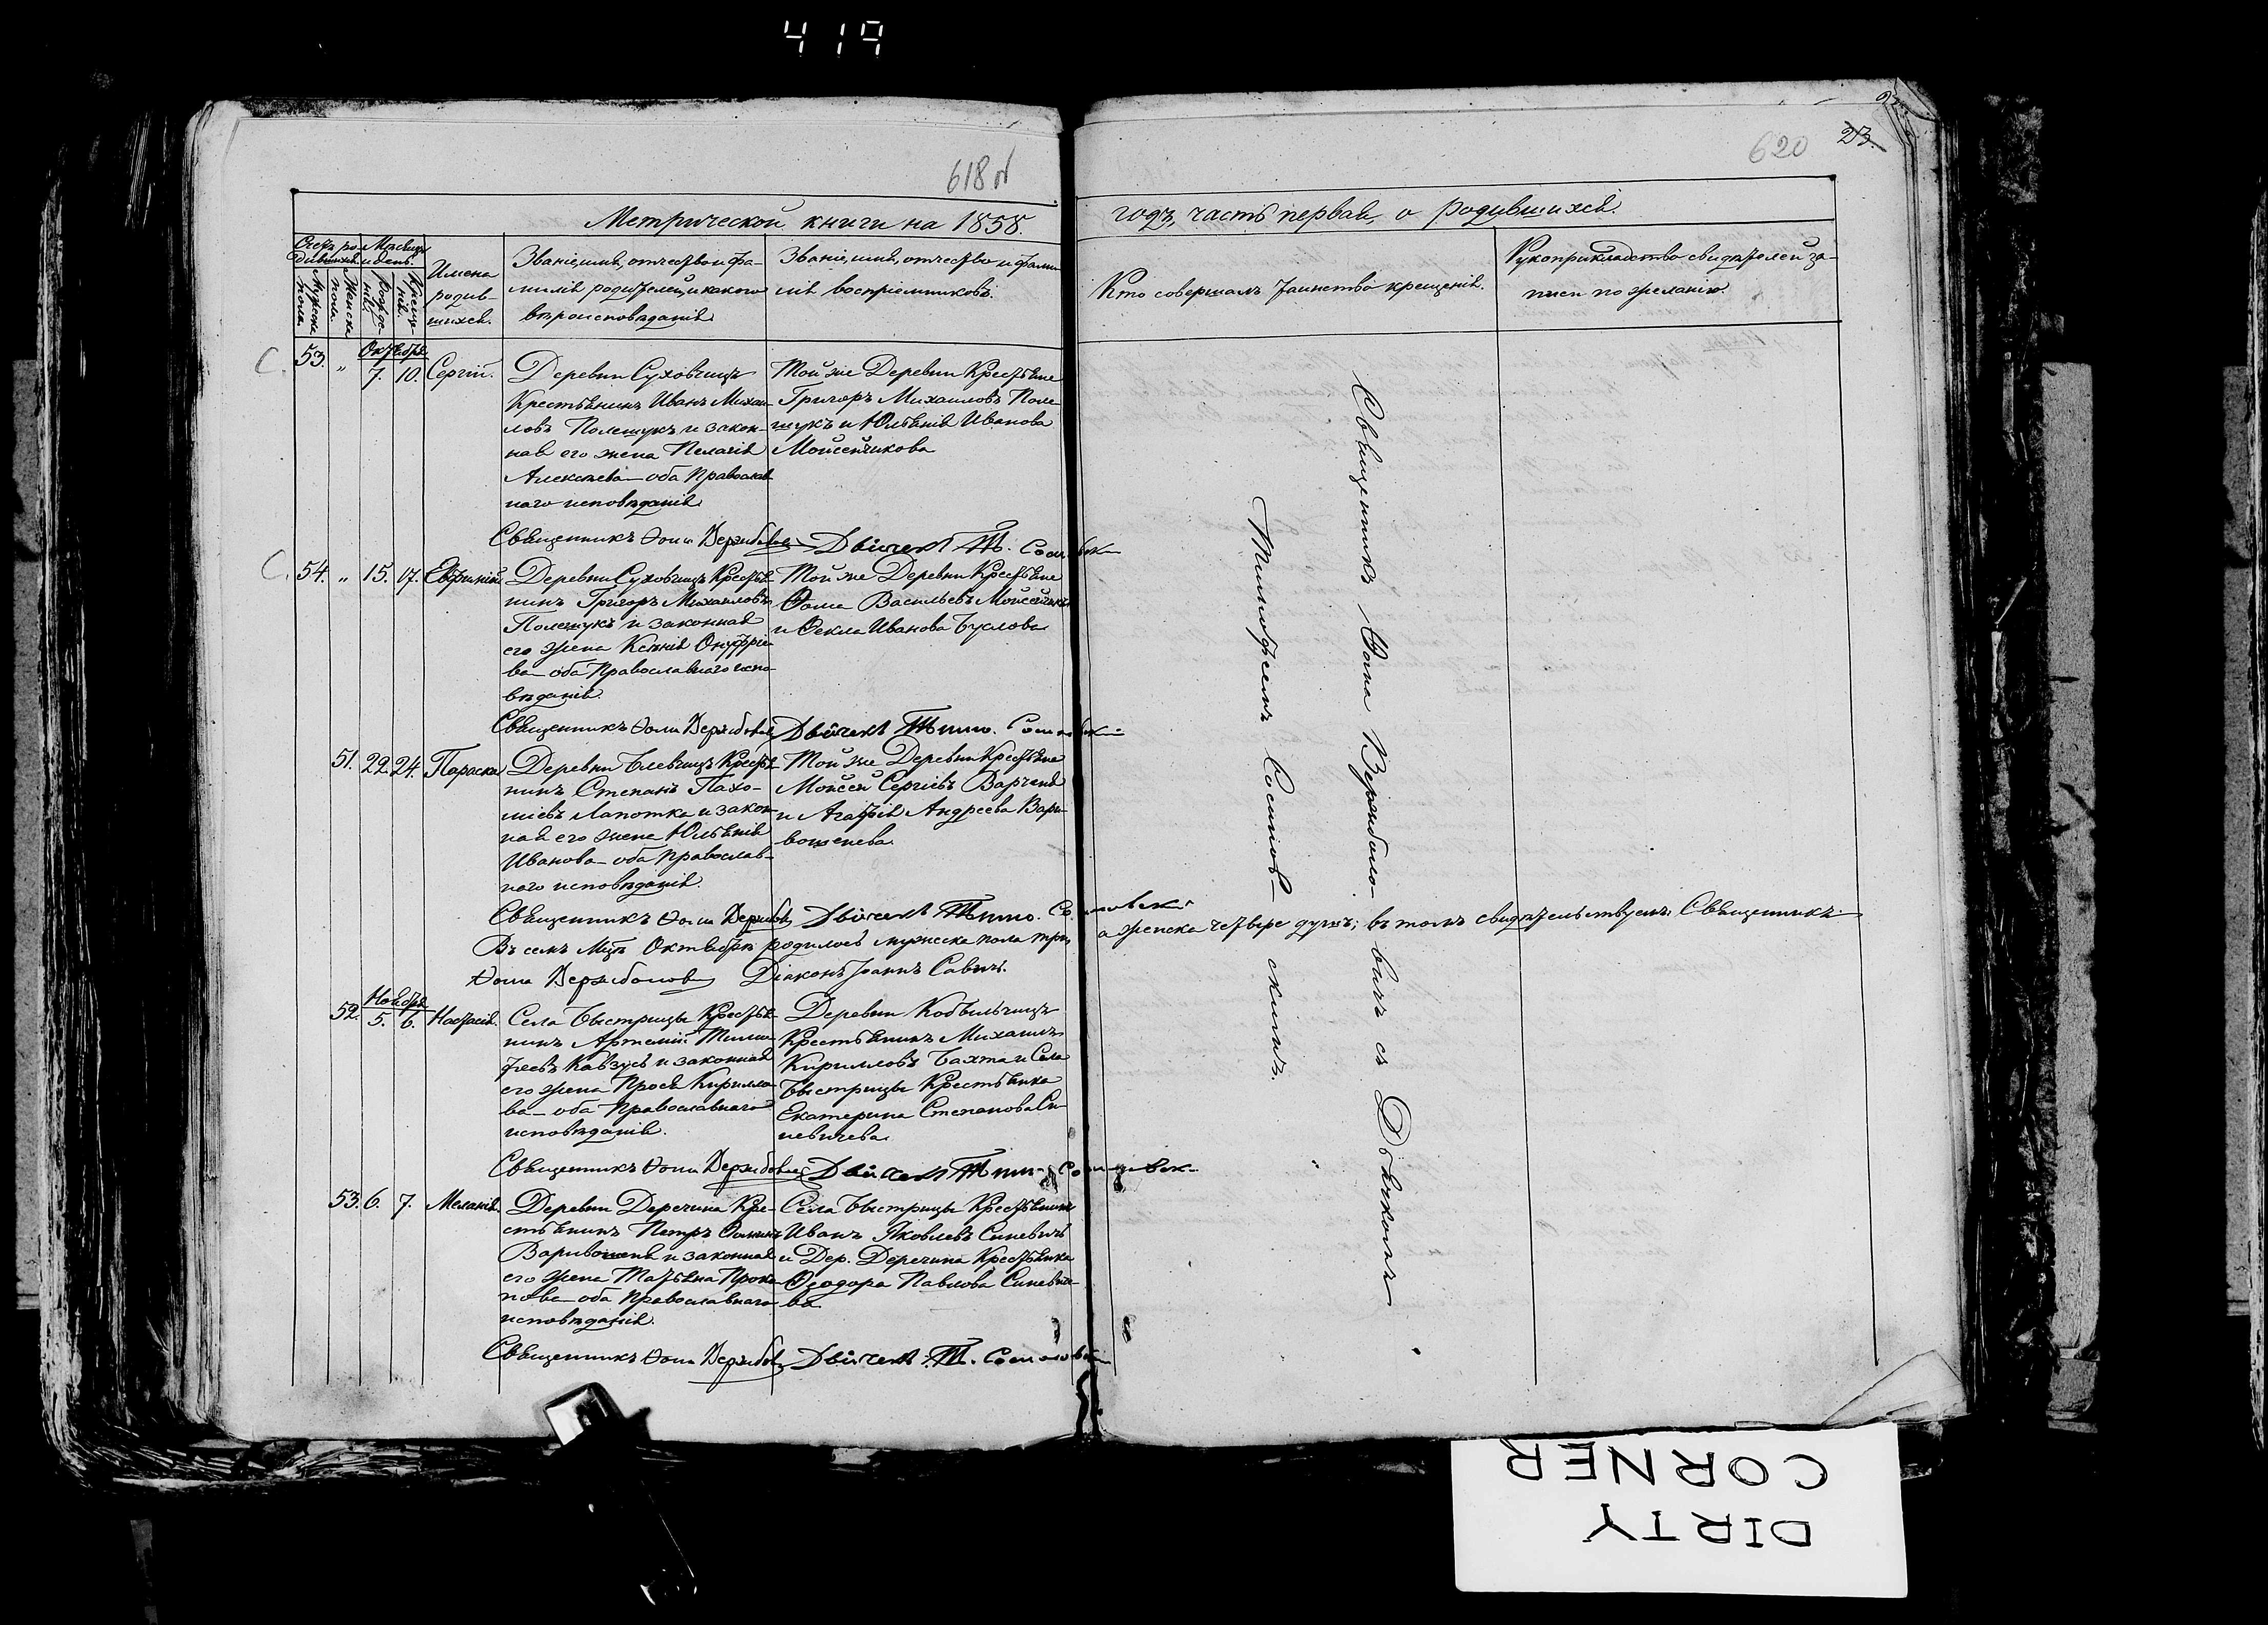 419
618 об
620
23
Метрической книги на 1858.
годъ, часть первая, о родившихся.
Счетъ ро-
дившихся.
Мѣсяцъ
и день.
Мужеска
пола.
Женска
пола.
Рожде-
нія.
Креще-
нія.
Имена
родив-
шихся.
Званіе, имя, отчество и фа-
милія родителей, и какого
вѣроисповѣданія.
Званіе, имя, отчество и фами-
лія воспріемниковъ.
Кто совершалъ таинство крещенія.
Рукоприкладство свидѣтелей за-
писи по желанію.
Октября
С. 53. „ 7. 10. Сергій.
Деревни Суховчицъ
Крестьянинъ Иванъ Михаи-
ловъ Полещукъ и закон-
ная его жена Пелагія
Алексѣева – оба Православ
наго исповѣданія.
Той же Деревни Крестьяне
Григоръ Михаиловъ Поле-
щукъ и Юльянія Иванова
Мойсейчикова
Священникъ Ѳома Вержболов
Дьячекъ Т.
С. 54. „ 15. 17. Евѳимій.
Деревни Суховчицъ Крестья
нинъ Григоръ Михаиловъ
Полещукъ и законная
его жена Ксенія Онуфріе
ва – оба Православнаго испо-
вѣданія.
Той же Деревни Крестьяне
Ѳома Васильевъ Мойсейчикъ
и Ѳекла Иванова Буслова
Священникъ Ѳома Вержболов
Дьячекъ Тимо.
51. 22. 24. Параска
Деревни Блевчицъ Крестья
нинъ Степанъ Пахо-
міевъ Лапотка и закон
ная его жена Юльянія
Иванова – оба Православ-
наго исповѣданія.
Той же Деревни Крестьяне
Мойсей Сергіевъ Варченя
и Агафія Андреева Вари-
вошенева.
Священникъ Ѳома Вержбол
Дьячекъ Тимо.
Въ семъ Мцѣ Октябрѣ родилось мужеска пола три, а женска четыре душъ; въ томъ свидѣтельствуемъ: Священникъ
Ѳома Вержболов Діаконъ Іоаннъ Савичъ.
Ноября
52. 5. 6. Настасія.
Села Быстрицы Крестья
нинъ Артемій Тимо
ѳеевъ Кавзусь и законная
его жена Прося Кирилло
ва – оба Православнаго
исповѣданія.
Деревни Кобыльчицъ
Крестьянинъ Михаилъ
Кирилловъ Бахта и Села
Быстрицы Крестьянка
Екатерина Степанова Си-
невичева.
Священникъ Ѳома Вержболов
Дьячекъ Тим.
53. 6. 7. Меланія.
Деревни Деречина Кре-
стьянинъ Петръ Ѳоминъ
Варивошеня и законная
его жена Татьяна Проко
пова – оба Православнаго
исповѣданія.
Села Быстрицы Крестьянинъ
Иванъ Яковлевъ Синевичъ
и Дер. Деречина Крестьянка
Ѳеодора Павлова Синевиче-
ва
Священникъ Ѳома Вержбол
Дьячекъ Т.
Священникъ Ѳома Вержболо- вичъ съ Дьячкомъ
Тимоѳеемъ Сосинов- скимъ.
DIRTY
CORNER